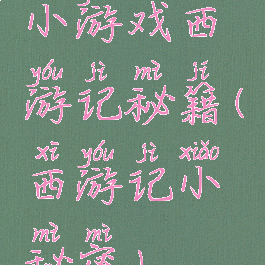 小游戏西
yóu jì mì jí
游记秘籍(
xī yóu jì xiǎo
西游记小
mì mì
秘密)